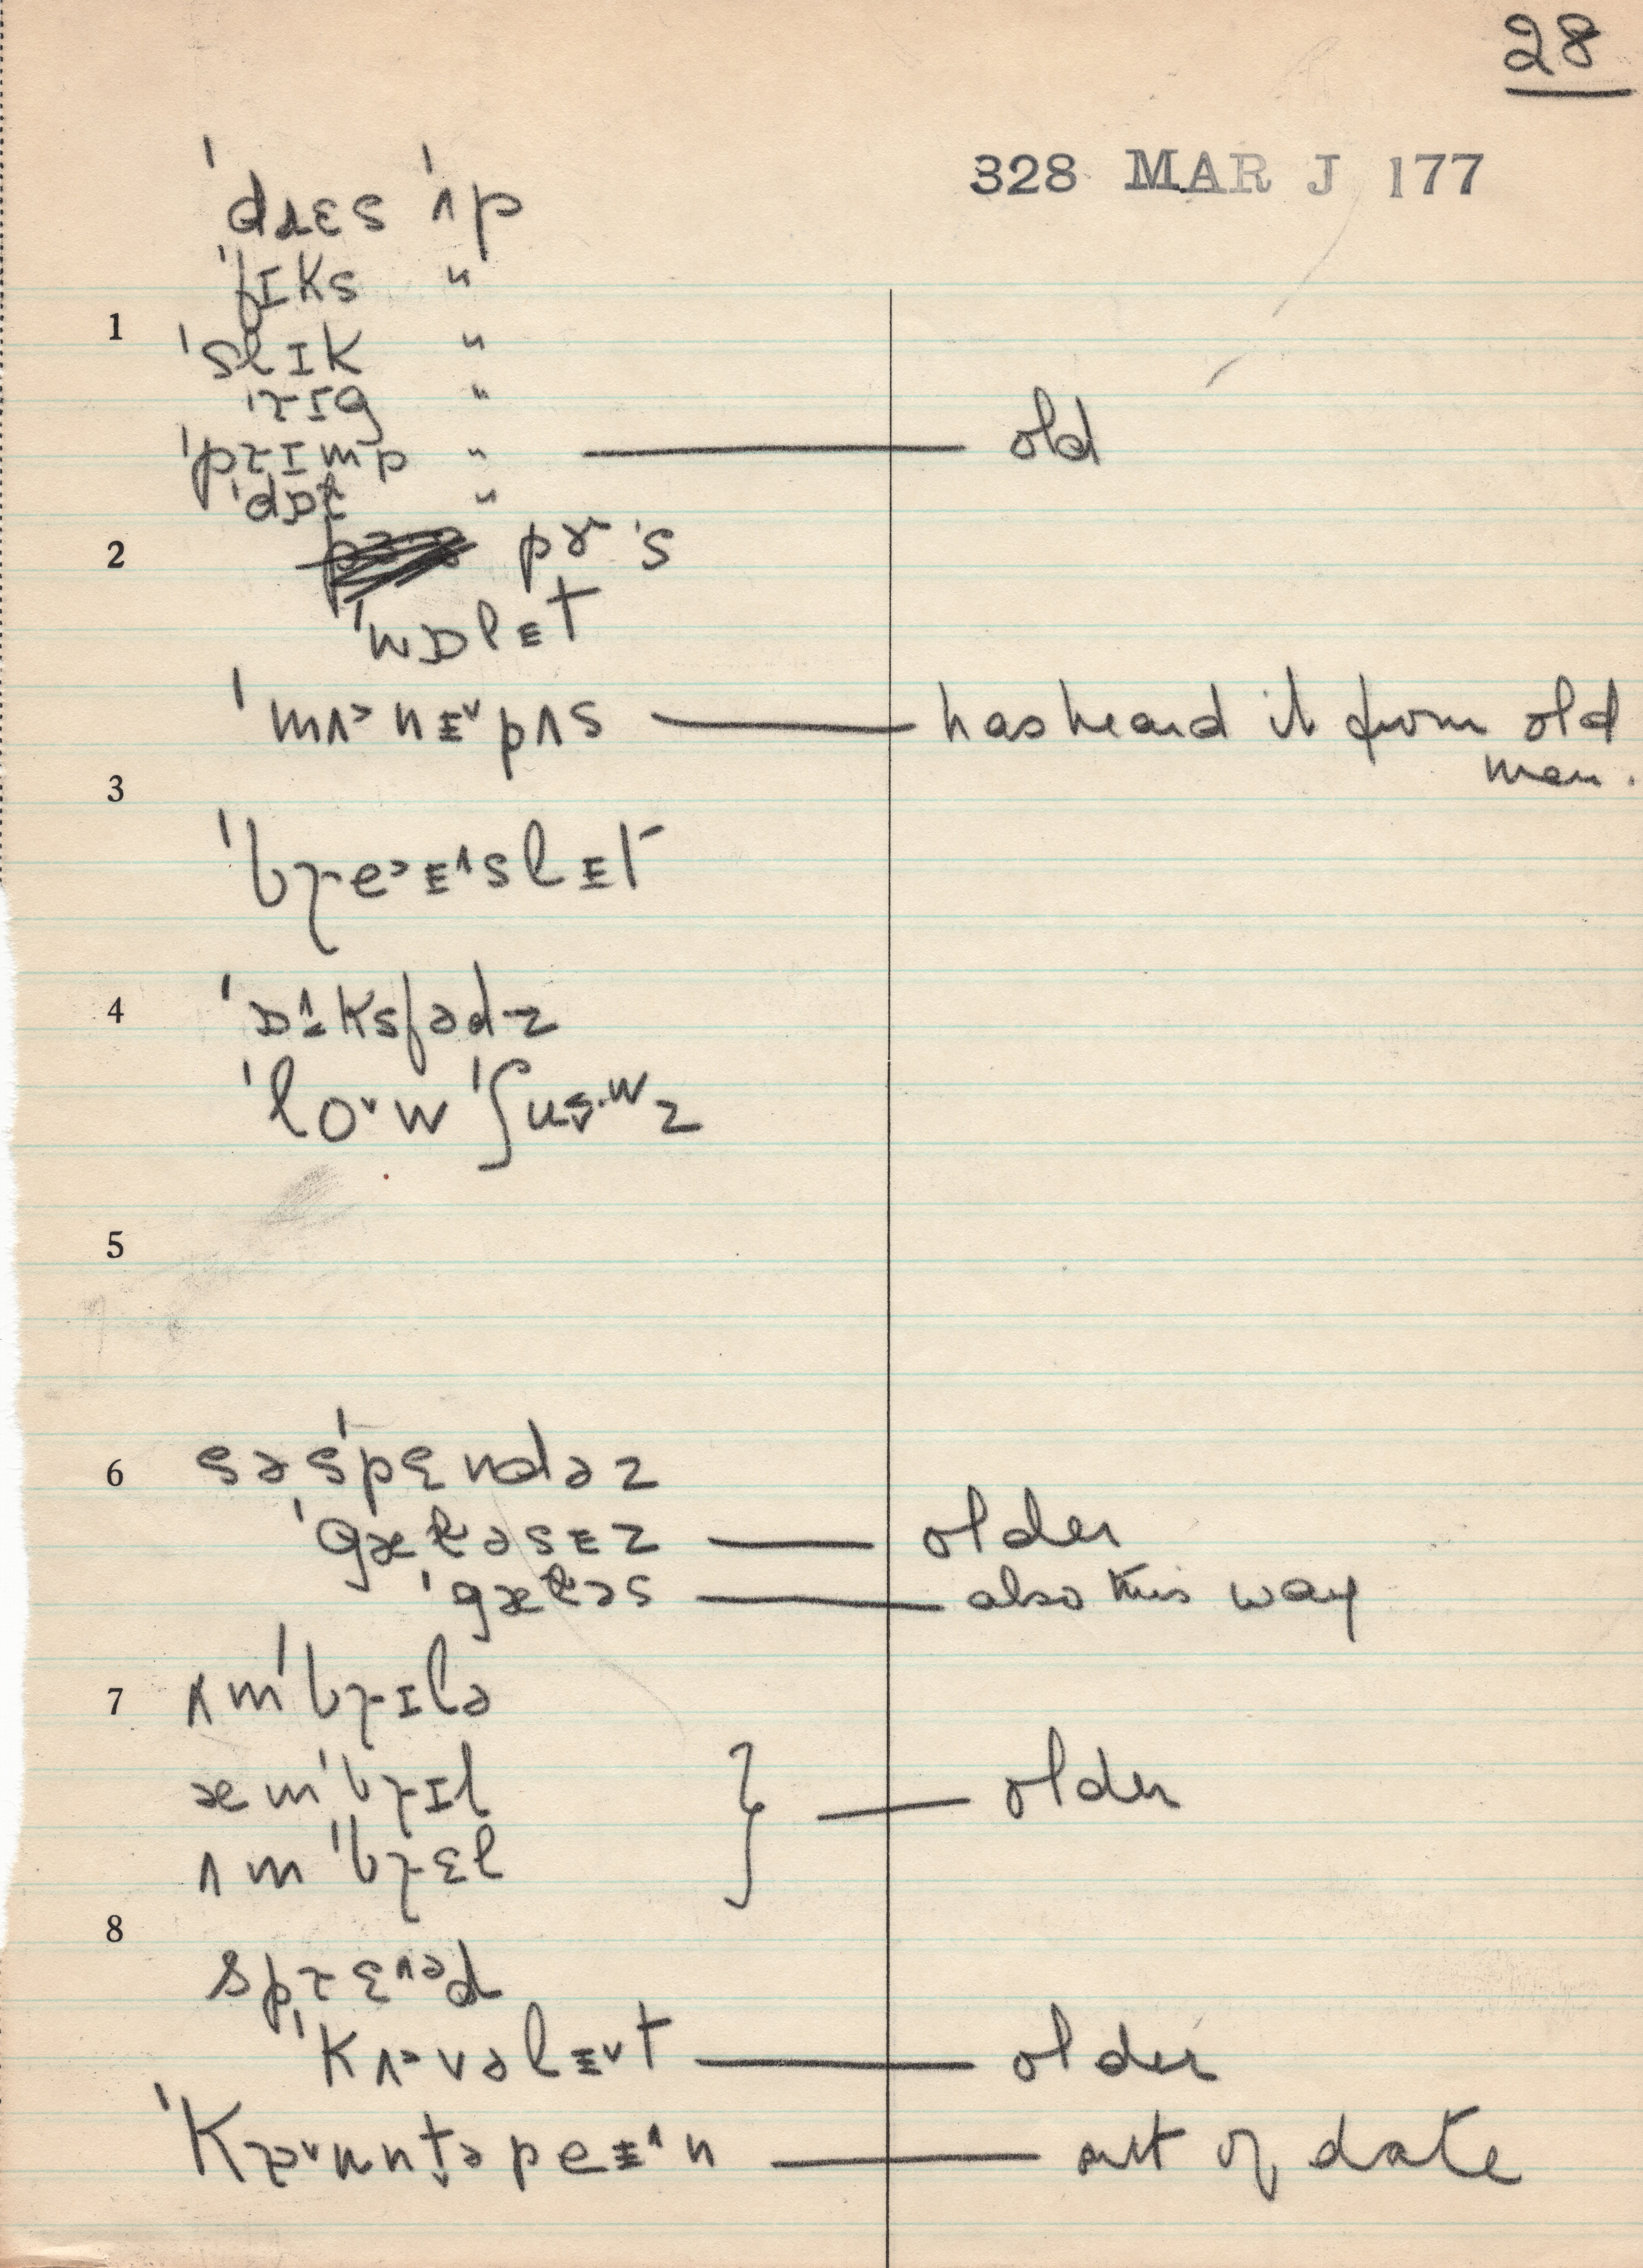 28
328 MAR J 177
ˈdɹɛs ˈʌp
ˈfɪks "
1
ˈslɪk "
ˈɹɪg "
ˈpɹɪmp " — old
ˈdɒl "
2
pɝˈs
ˈwɒlᵻt
ˈmʌ˃nᵻ˅pʌs — has heard it from old
men.
3
ˈbɹe˃ᵻ˄slᵻt
4
ˈɒksfədz
ˈlo˅w ˈʃuz
5
6
səˈspɛndəz
ˈgæləsᵻz — older
ˈgæləs — also this way
7
ʌmˈbɹɪlə
æmˈbɹɪl
ʌmˈbɹɛl } — older
8
spɹɛ˄əd
ˈkʌ˃vəlᵻ˅t — older
ˈkə˅ʊntəpeᵻ˄n — out of date